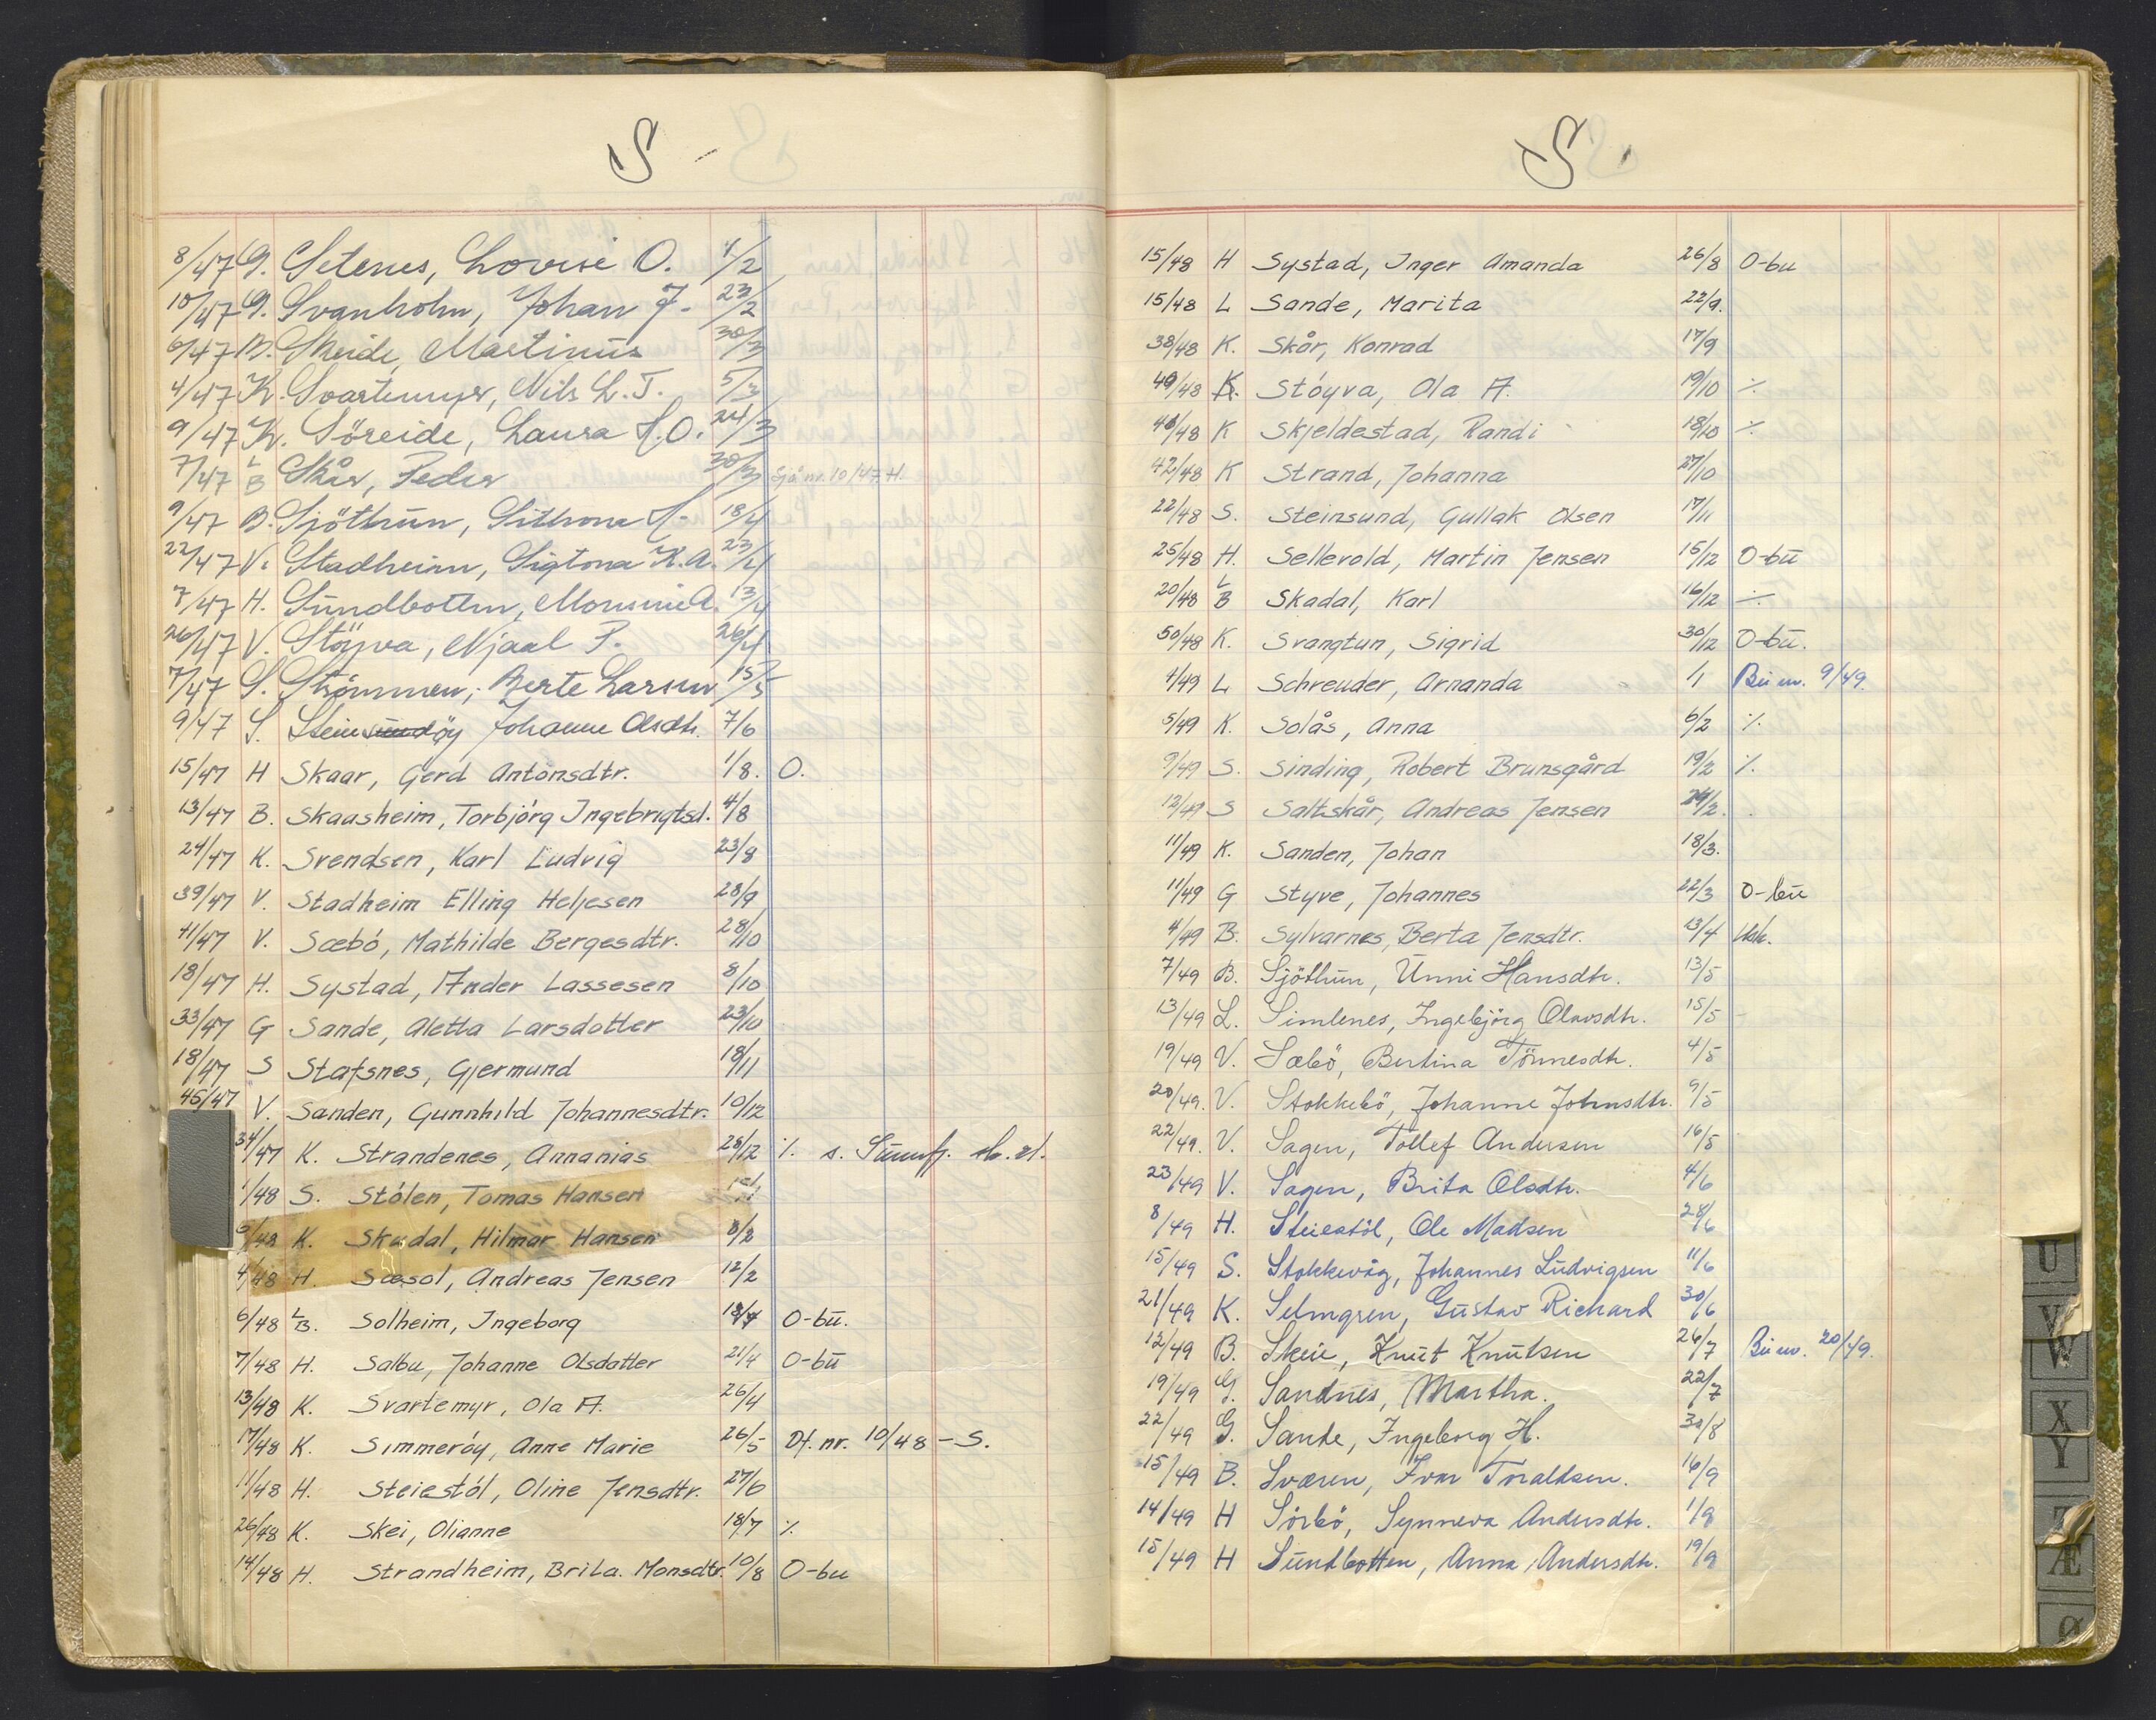 S
8/47 G. Setenes, Lovise O. 4/2
10/47 G. Svanholm, Johan J. 23/2
6/47 B. Skeide, Martinus 30/3
4/47 K. Svartemyr, Nils L. T. 5/3
9/47 K. Söreide, Laura S. O. 24/3
7/47 L B Skår, Peder 30/3 Sjå nr. 10/47 H.
9/47 B. Sjöthun, 18/4
22/47 V. Stadheim, Sigtona K. A. 23/4
7/47 H. Sundbotten, Monsine A. 13/4
26/47 V. Stöyva, Njaal P. 26/4
7/47 S. Strömmen, Berte Larsen 15/5
9/47 S. Steinsundöy Johanne Olsdtr. 7/6
15/47 H Skaar, Gerd Antonsdtr. 1/8. O.
13/47 B. Skaasheim, Torbjörg Ingebrigtsd. 4/8
24/47 K. Svendsen, Karl Ludvig 23/8
39/47 V. Stadheim Elling Heljesen 28/9
41/47 V. Sæbó, Mathilde Bergesdtr. 28/10
18/47 H. Systad, Ander Lassesen 8/10
33/47 G Sande, Aletta Larsdotter 23/10
18/47 S Stafsnes, Gjermund 18/11
45/47 V. Sanden, Gunnhild Johannesdtr. 10/12
34/47 K. Strandenes, Annanias 28/12 ./. s.
1/48 S. Stólen, Tomas Hansen
5/48 K. Skadal, Hilmar Hansen 8/2
4/48 H. Sæsol, Andreas Jensen 12/2
6/48 L B. Solheim, Ingeborg 18/4 O-bu.
7/48 H. Salbu, Johanne Olsdatter 21/4 O-bu
13/48 K. Svartemyr, Ola A. 26/4
17/48 K. Simmeróy, Anne Marie 26/5 Df. nr. 10/48 - S.
11/48 H. Steiestól, Oline Jensdtr. 27/6
26/48 K. Skei, Olianne 18/7 ./.
14/48 H. Strandheim, Brita. Monsdtr. 10/8 O-bu
S
15/48 H Systad, Inger Amanda 26/8 O-bu
15/48 L Sande, Marita 22/9.
38/48 K. Skår, Konrad 17/9
40/48 K. Stóyva, Ola A. 19/10 ./.
40/48 K Skjeldestad, Randi 18/10 ./.
42/48 K Strand, Johanna 27/10
22/48 S. Steinsund, Gullak Olsen 17/11
25/48 H. Sellevold, Martin Jensen 15/12 O-bu
20/48 L B Skadal, Karl 16/12 ./.
50/48 K. Svangtun, Sigrid 30/12 O-bu.
1/49 L Schreuder, Arnanda 1/1 Bu nr. 9/49.
5/49 K. Solås, Anna 6/2 ./.
9/49 S. Sinding, Robert Brunsgård 19/2 ./.
12/49 S Saltskår, Andreas Jensen 24/2.
11/49 K. Sanden, Johan 18/3.
11/49 G Styve, Johannes 22/3 O-bu
4/49 B. Sylvarnes, Berta Jensdtr. 13/4
7/49 B. Sjöthun, Unni Hansdtr. 13/5
13/49 L. Simlenes, Ingebjörg Olavsdtr. 15/5
19/49 V. Sæbö, Bertina Tönnesdtr. 4/5
20/49. V. Stokkebö, Johanne Johnsdtr. 9/5
22/49. V. Sagen, Tollef Andersen 16/5
23/49 V. Sagen, Brita Olsdtr. 4/6
8/49 H. Steiestöl, Ole Madsen 28/6
15/49 S. Stokkevåg, Johannes Ludvigsen 11/6
21/49 K. Selmgren, Gustav Richard 30/6
12/49 B. Skeie, Knut Knutsen 26/7 Bu nr. 20/49.
19/49 G. Sandnes, Martha. 22/7
22/49 G. Sande, Ingeborg H. 30/8
15/49 B. Sværen, Ivar Toraldsen. 16/9
14/49 H Sörbö, Synneva Andersdtr. 1/9
15/49 H Sundbotten, Anna Andersdtr. 19/9
U
V
W
X
Y
Z
Æ
Ø